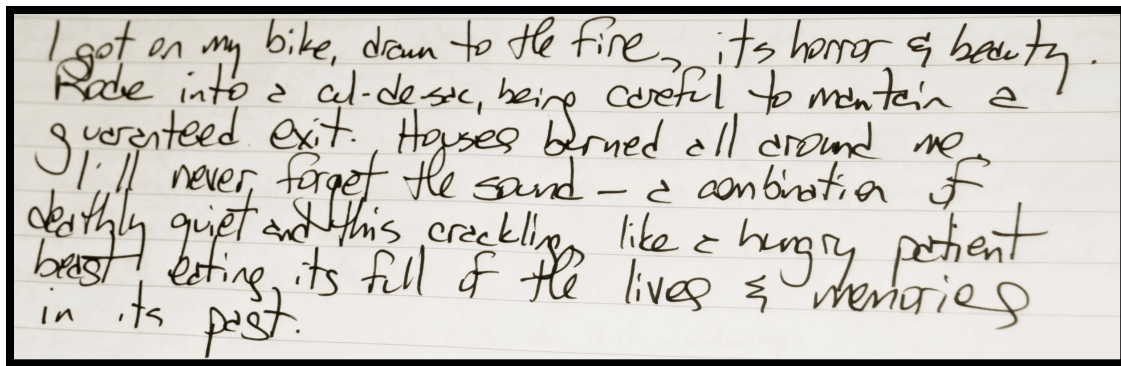 I got on my bike, drawn to the fire, its horror & beauty.
Rode into a cul-de-sac, being careful to mantain a
guaranteed exit. Houses burned all around me.
I'll never forget the sound – a combination of
deathly quiet and this crackling, like a hungry patient
beast eating its full of the lives & memories
in its past.